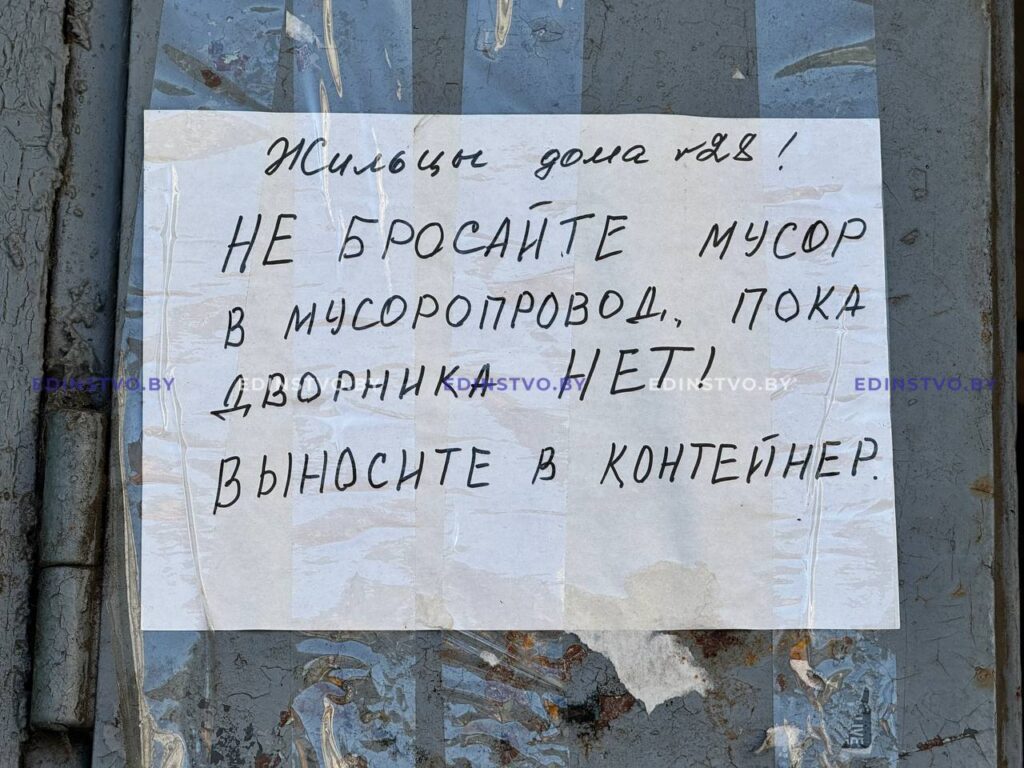 Жильцы дома №28!
НЕ БРОСАЙТЕ МУСОР
В МУСОРОПРОВОД, ПОКА
ДВОРНИКА НЕТ!
EDINSTVO.BY EDINSTVO.BY EDINSTVO.BY EDINSTVO.BY EDINSTVO.BY
ВЫНОСИТЕ В КОНТЕЙНЕР.